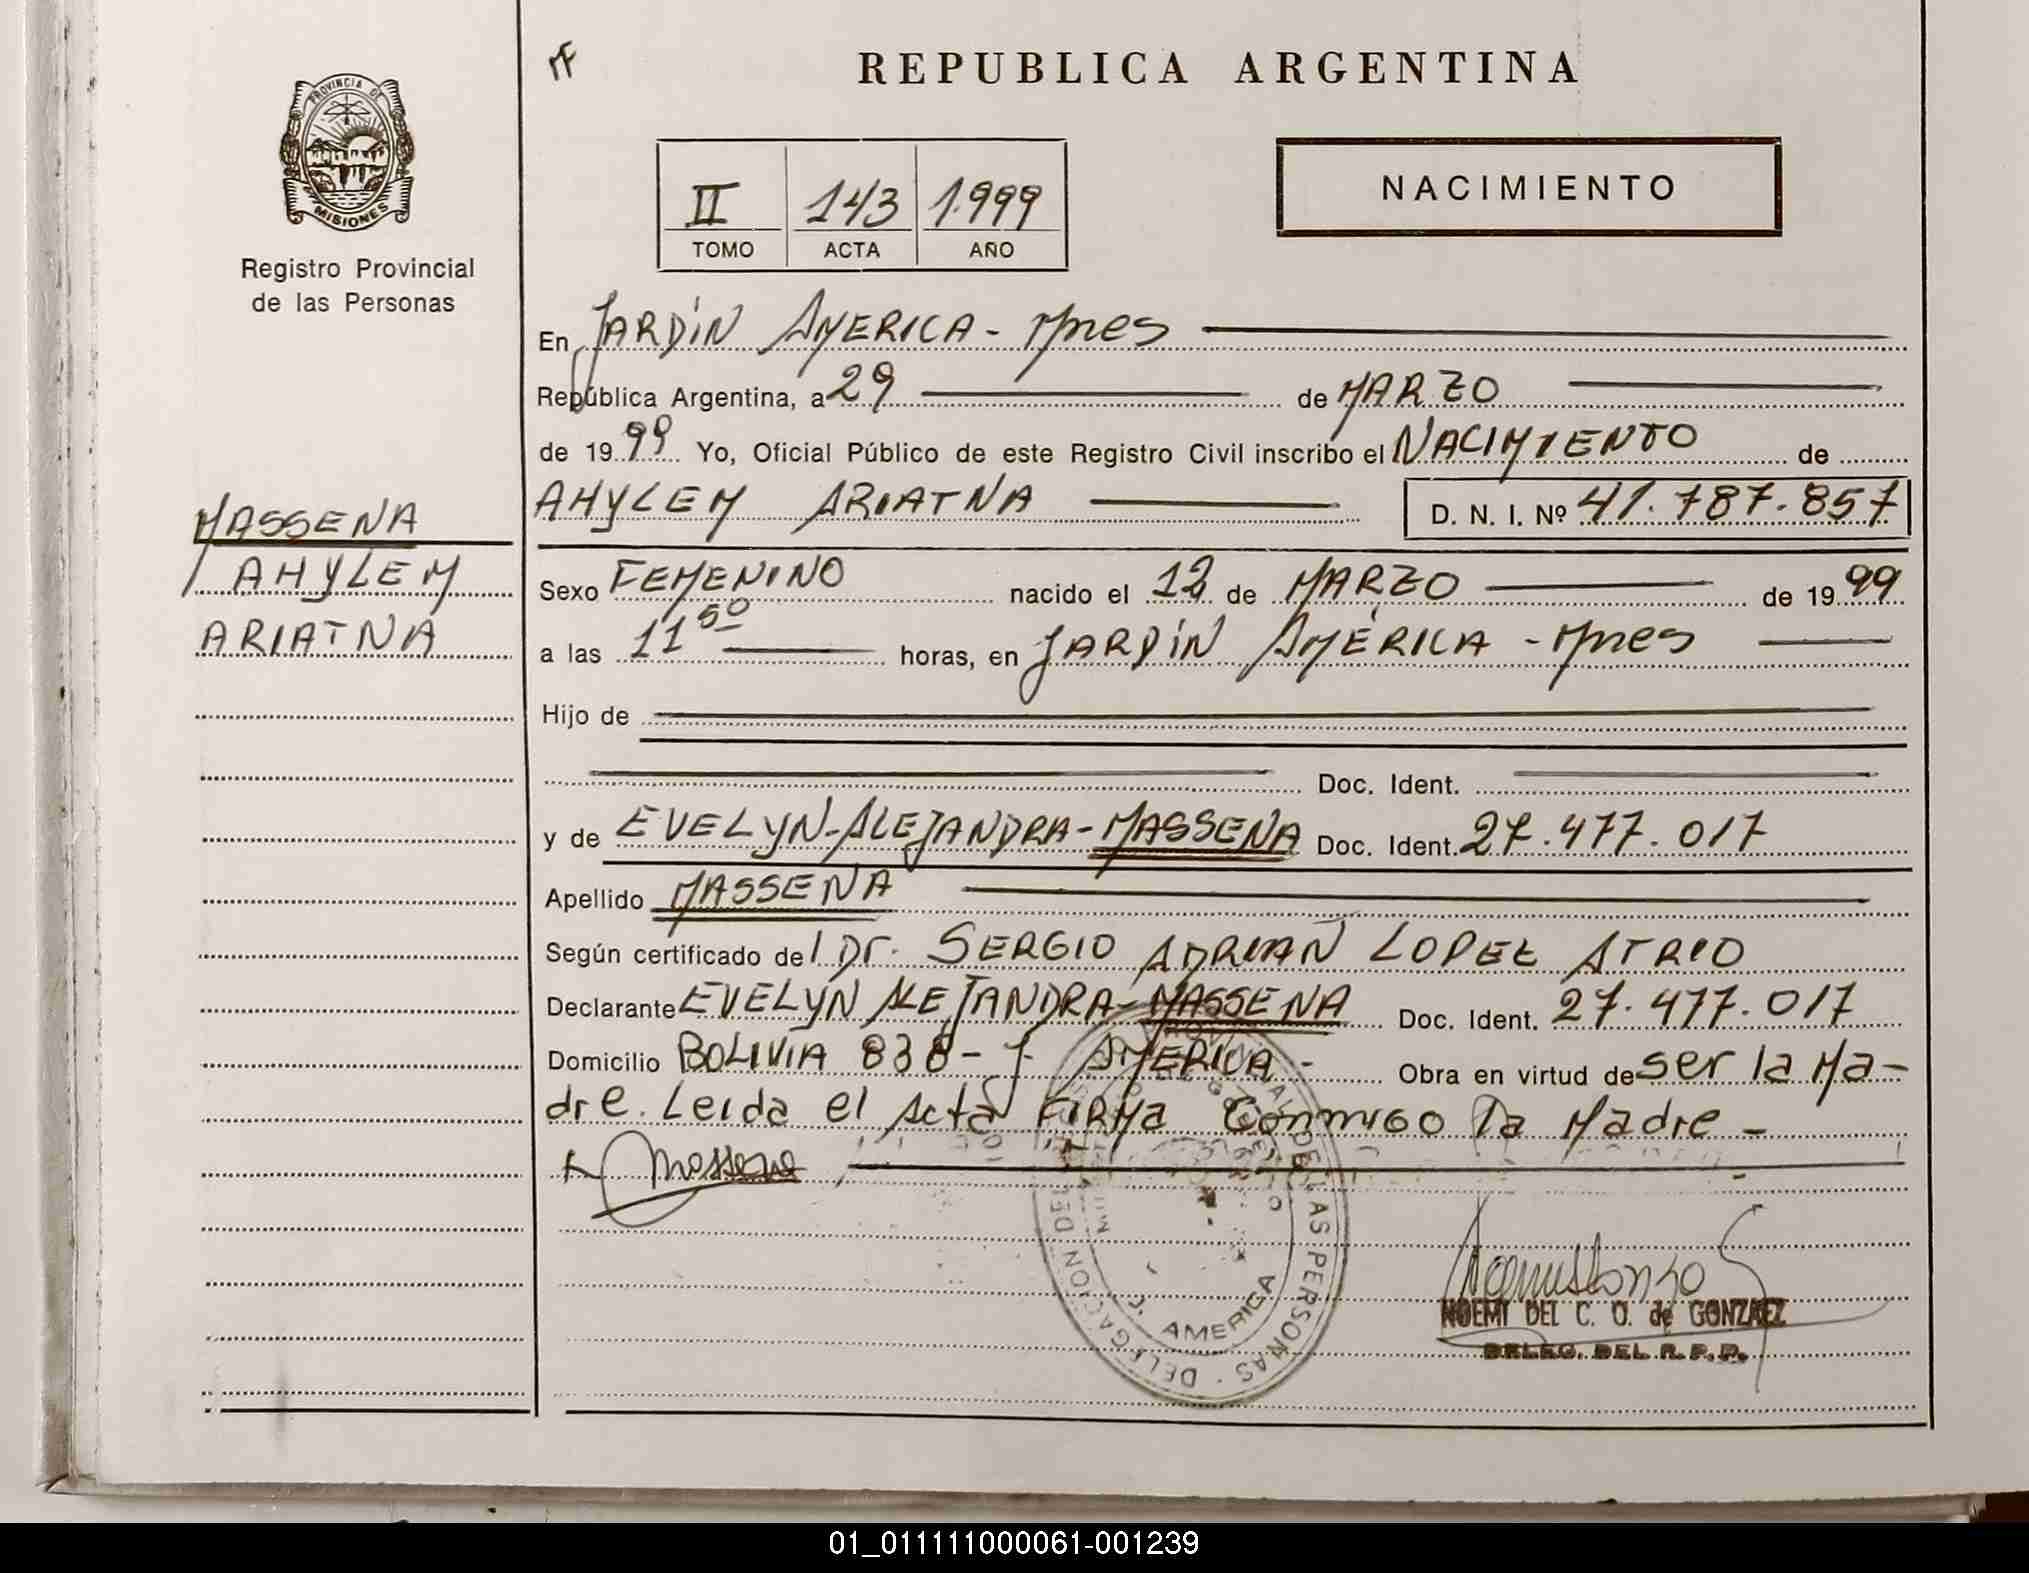 REPUBLICA ARGENTINA
PROVINCIA DE
MISIONES
Registro Provincial
de las Personas
II 143 1.999
TOMO ACTA AÑO
NACIMIENTO
En JARDÍN AMERICA - Mnes
República Argentina, a 29 de MARZO
de 1999 Yo, Oficial Público de este Registro Civil inscribo el NACIMIENTO de
AHYLEM ARIATNA D. N. I. Nº 41.787.857
MASSENA
AHYLEM
ARIATNA
Sexo FEMENINO nacido el 12 de MARZO de 1999
a las 11 50 horas, en JARDÍN AMÉRICA - Mnes
Hijo de
Doc. Ident.
y de EVELYN-ALEJANDRA-MASSENA Doc. Ident. 27.477.017
Apellido MASSENA
Según certificado del Dr. SERGIO ADRIAN LOPEZ ATRIO
Declarante EVELYN ALEJANDRA-MASSENA Doc. Ident. 27.477.017
Domicilio BOLIVIA 838 - J. AMERICA - Obra en virtud de ser la Ma-
dre. Leida el Acta FIRMA Conmigo la Madre -
Massena
DELEGACION DEL AS PERSONAS
J. AMERICA
NOEMI DEL C. O. de GONZALEZ
DELEG. DEL R. P. P.
01_011111000061-001239